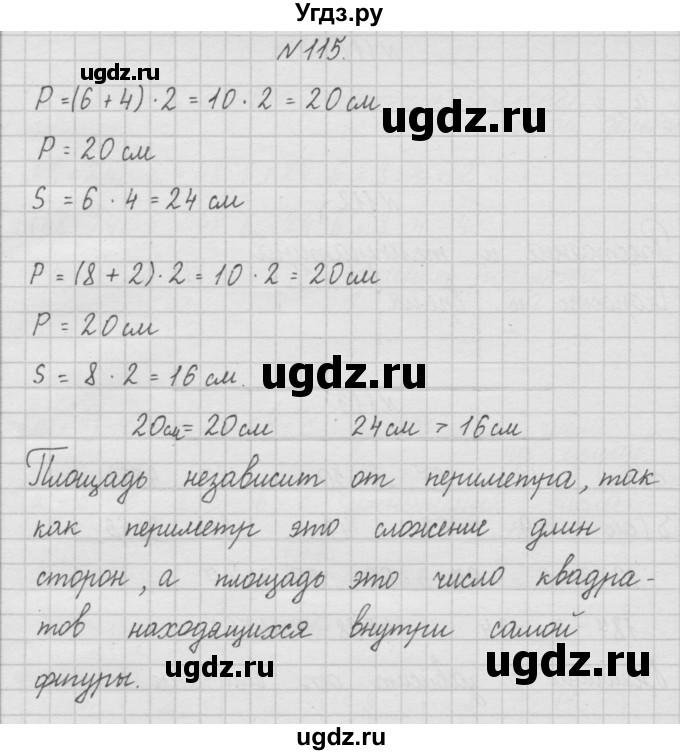 Угдз.ру
№115.
ugdz.ru
P = (6 + 4) · 2 = 10 · 2 = 20 см
ugdz.ru
P = 20 см
S = 6 · 4 = 24 см
P = (8 + 2) · 2 = 10 · 2 = 20 см
P = 20 см
ugdz.ru
S = 8 · 2 = 16 см.
20см = 20 см 24 см > 16 см
Площадь независит от периметра, так
как периметр это сложение длин
сторон, а площадь это число квадра-
тов находящихся внутри самой
ugdz.ru
ugdz.ru
фигуры.
ugdz.ru